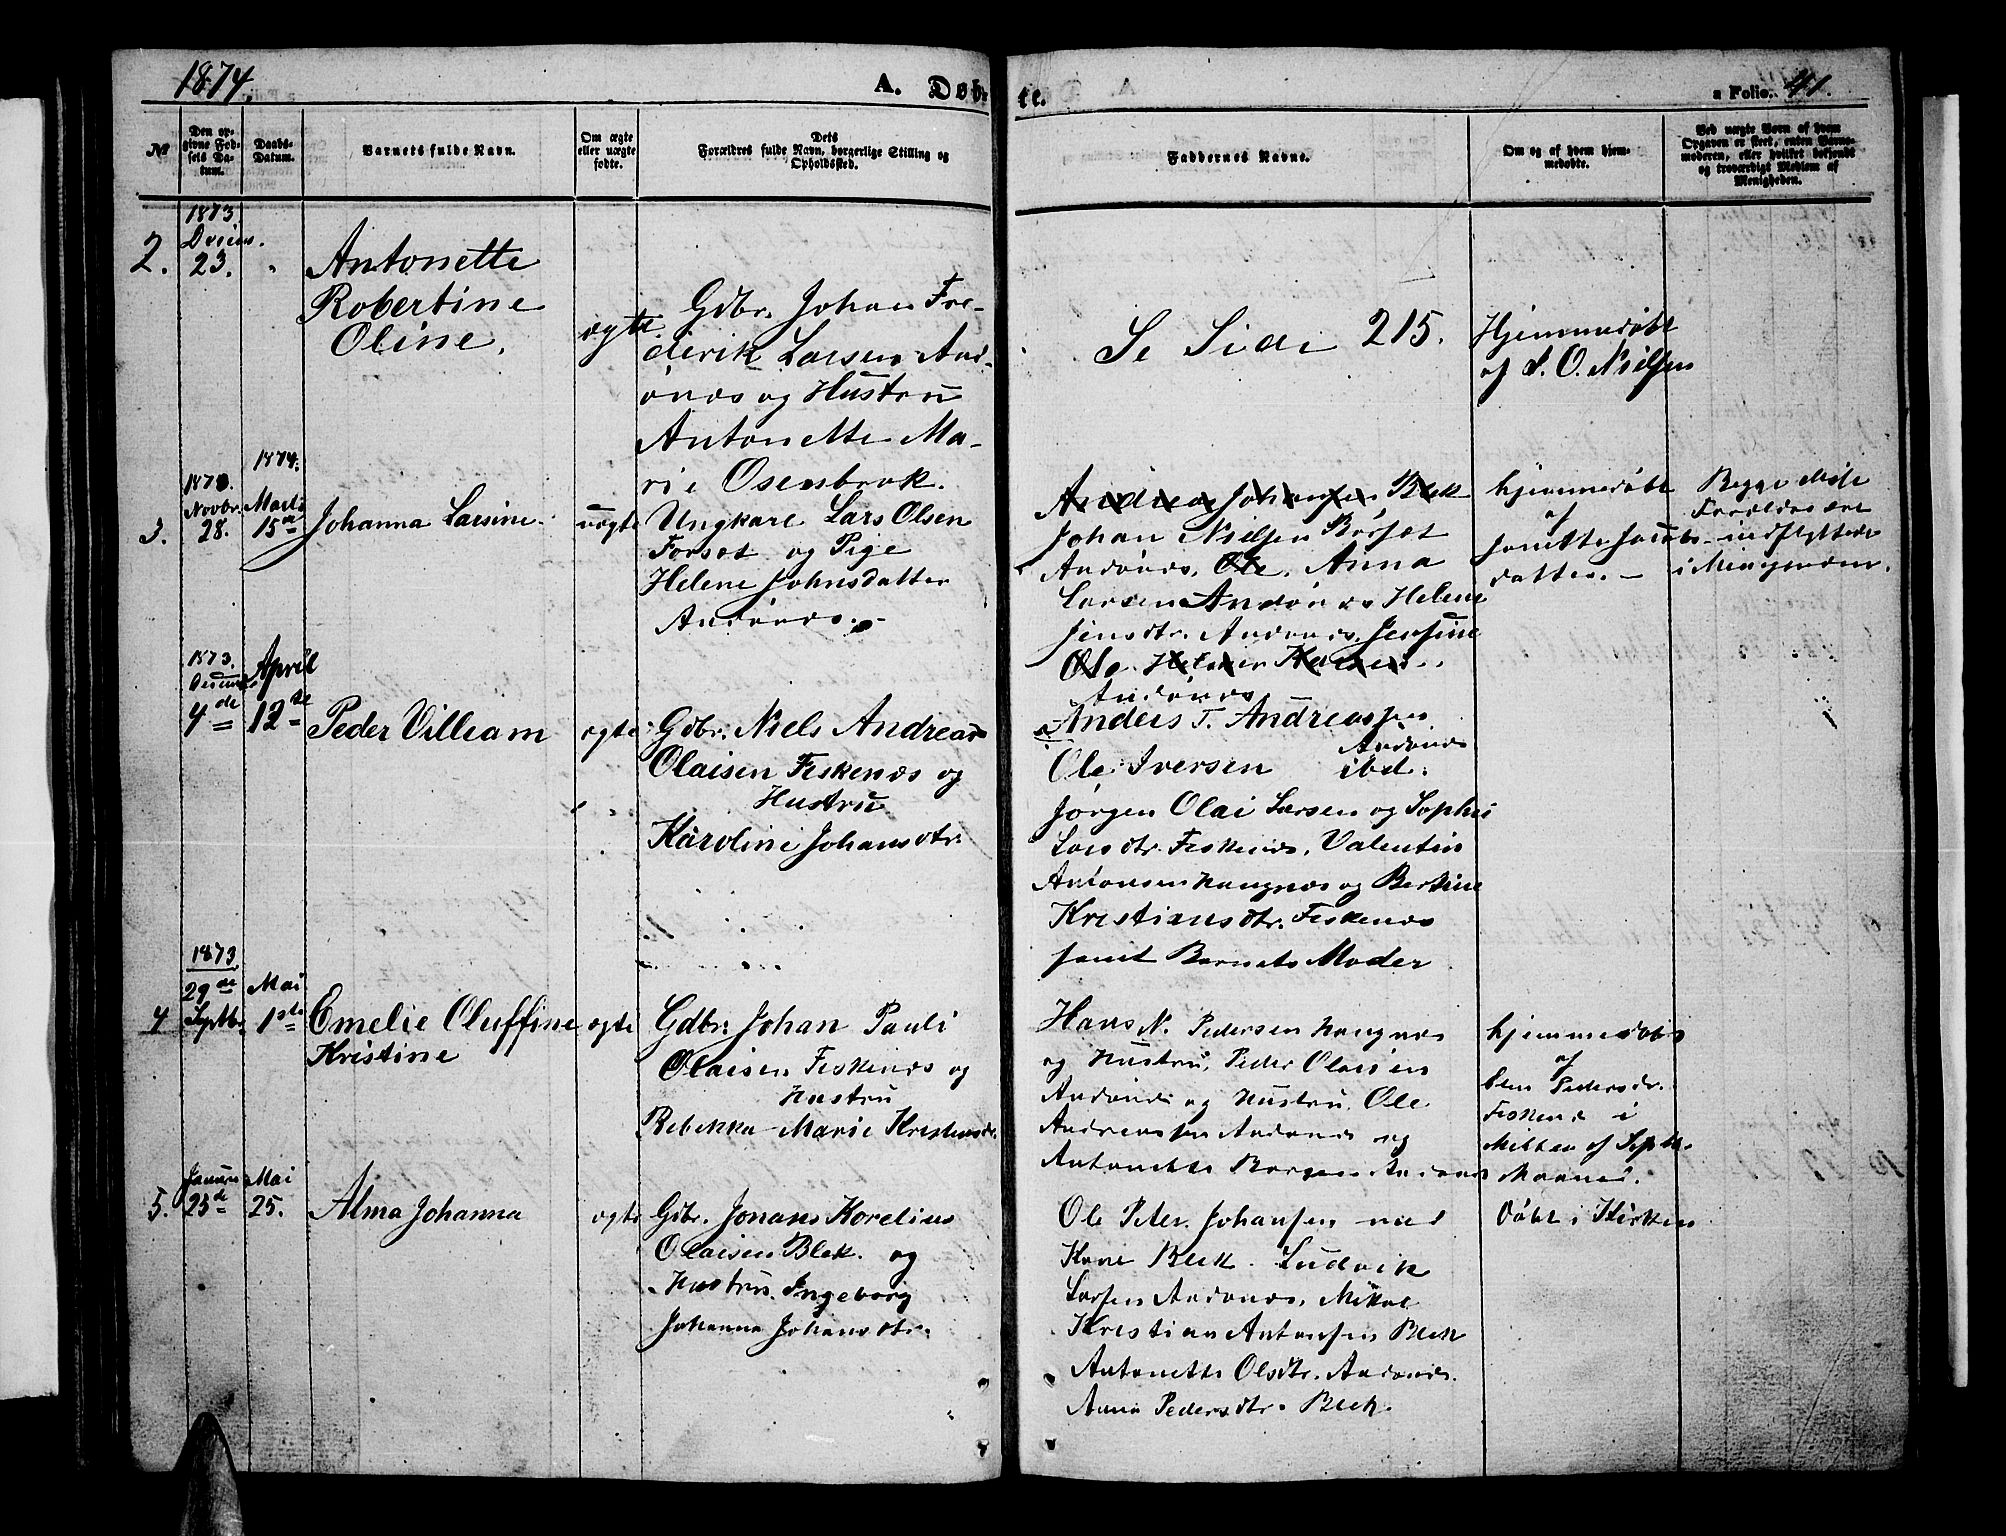 1874.
A. Døb-
te.
a Folio. 41.
№
Den op-
givne Fød-
sels Da-
tum.
Daabs-
Datum.
Barnets fulde Navn.
Om ægte
eller uægte
fødte.
Dets
Forældres fulde Navn, borgerlige Stilling og
Opholdssted.
Faddernes Navne.
Om og af hvem hjem-
medøbte.
Ved uægte Børn af hvem
Opgaven er skeet, enten Barne-
moderen, eller hvilket bekjendt
og troværdigt Medlem af
Menigheden.
2.
1873
23.
Antonette
Robertine
Oline.
ægte
Gdbr. Johan Fre-
derik Larsen And-
ønæs og Hustru
Antonette Ma-
rie Osenbrok.
Se Side 215.
Hjemmedøbt
af L. O. Nielsen
3.
Novbr.
28.
1874.
Marts
15de
Johanna Larsine
uægte
Ungkarl Lars Olsen
Forset og Pige
Helene Johnsdatter
Andønæs.
Andreas Johansen Blek
Johan Nielsen Børset
Andønæs. Ole. Anna
Larsen Andønæs Helene
Jensdtr. Andønæs. Jensine
Andønæs
hjemmedøbt
af
Janette Jacobs-
datter.
Begge
Forældre ere
indflyttede
i Menigheden.
1873.
4de
April
12te
Peder Villeam
ægte
Gdbr. Niels Andreas
Olaisen Feskenæs og
Hustru
Karoline Johansdtr.
Anders T. Andreassen
Andønæs
Ole Iversen ibd.
Jørgen Olai Larsen og Sophie
Larsdtr. Feskenæs, Valentin
Antonsen Haugnæs og Bertine
Kristiansdtr. Feskenæs
samt Barnets Moder
4
1873
29de
Septbr.
Mai
1ste
Emelie Oluffine
Kristine
ægte
Gdbr. Johan Pauli
Olaisen Feskenæs og
Hustru
Rebekka Marie Kristensdr.
Hans N. Pedersen Haugnæs
og Hustru, Peder Olaisen
Andønæs og Hustru, Ole
Andreassen Andønæs og
Antonette Borgen Andønæs
hjemmedøbt
af
Pedersdr.
Feskenæs i
Midten af Septbr.
Maaned.
5.
Januar
25de
Mai
25.
Alma Johanna
ægte
Gdbr. Jonans Korelius
Olaisen Blek. og
Hustru Ingeborg
Johanna Johansdtr.
Ole Peter Johansen med
Kone Blek. Ludvik
Larsen Andønæs, Mikal
Kristian Antonsen Blek
Antonette Olsdtr. Andønæs.
Anne Pedersdtr. Blek.
Døbt i Kirken